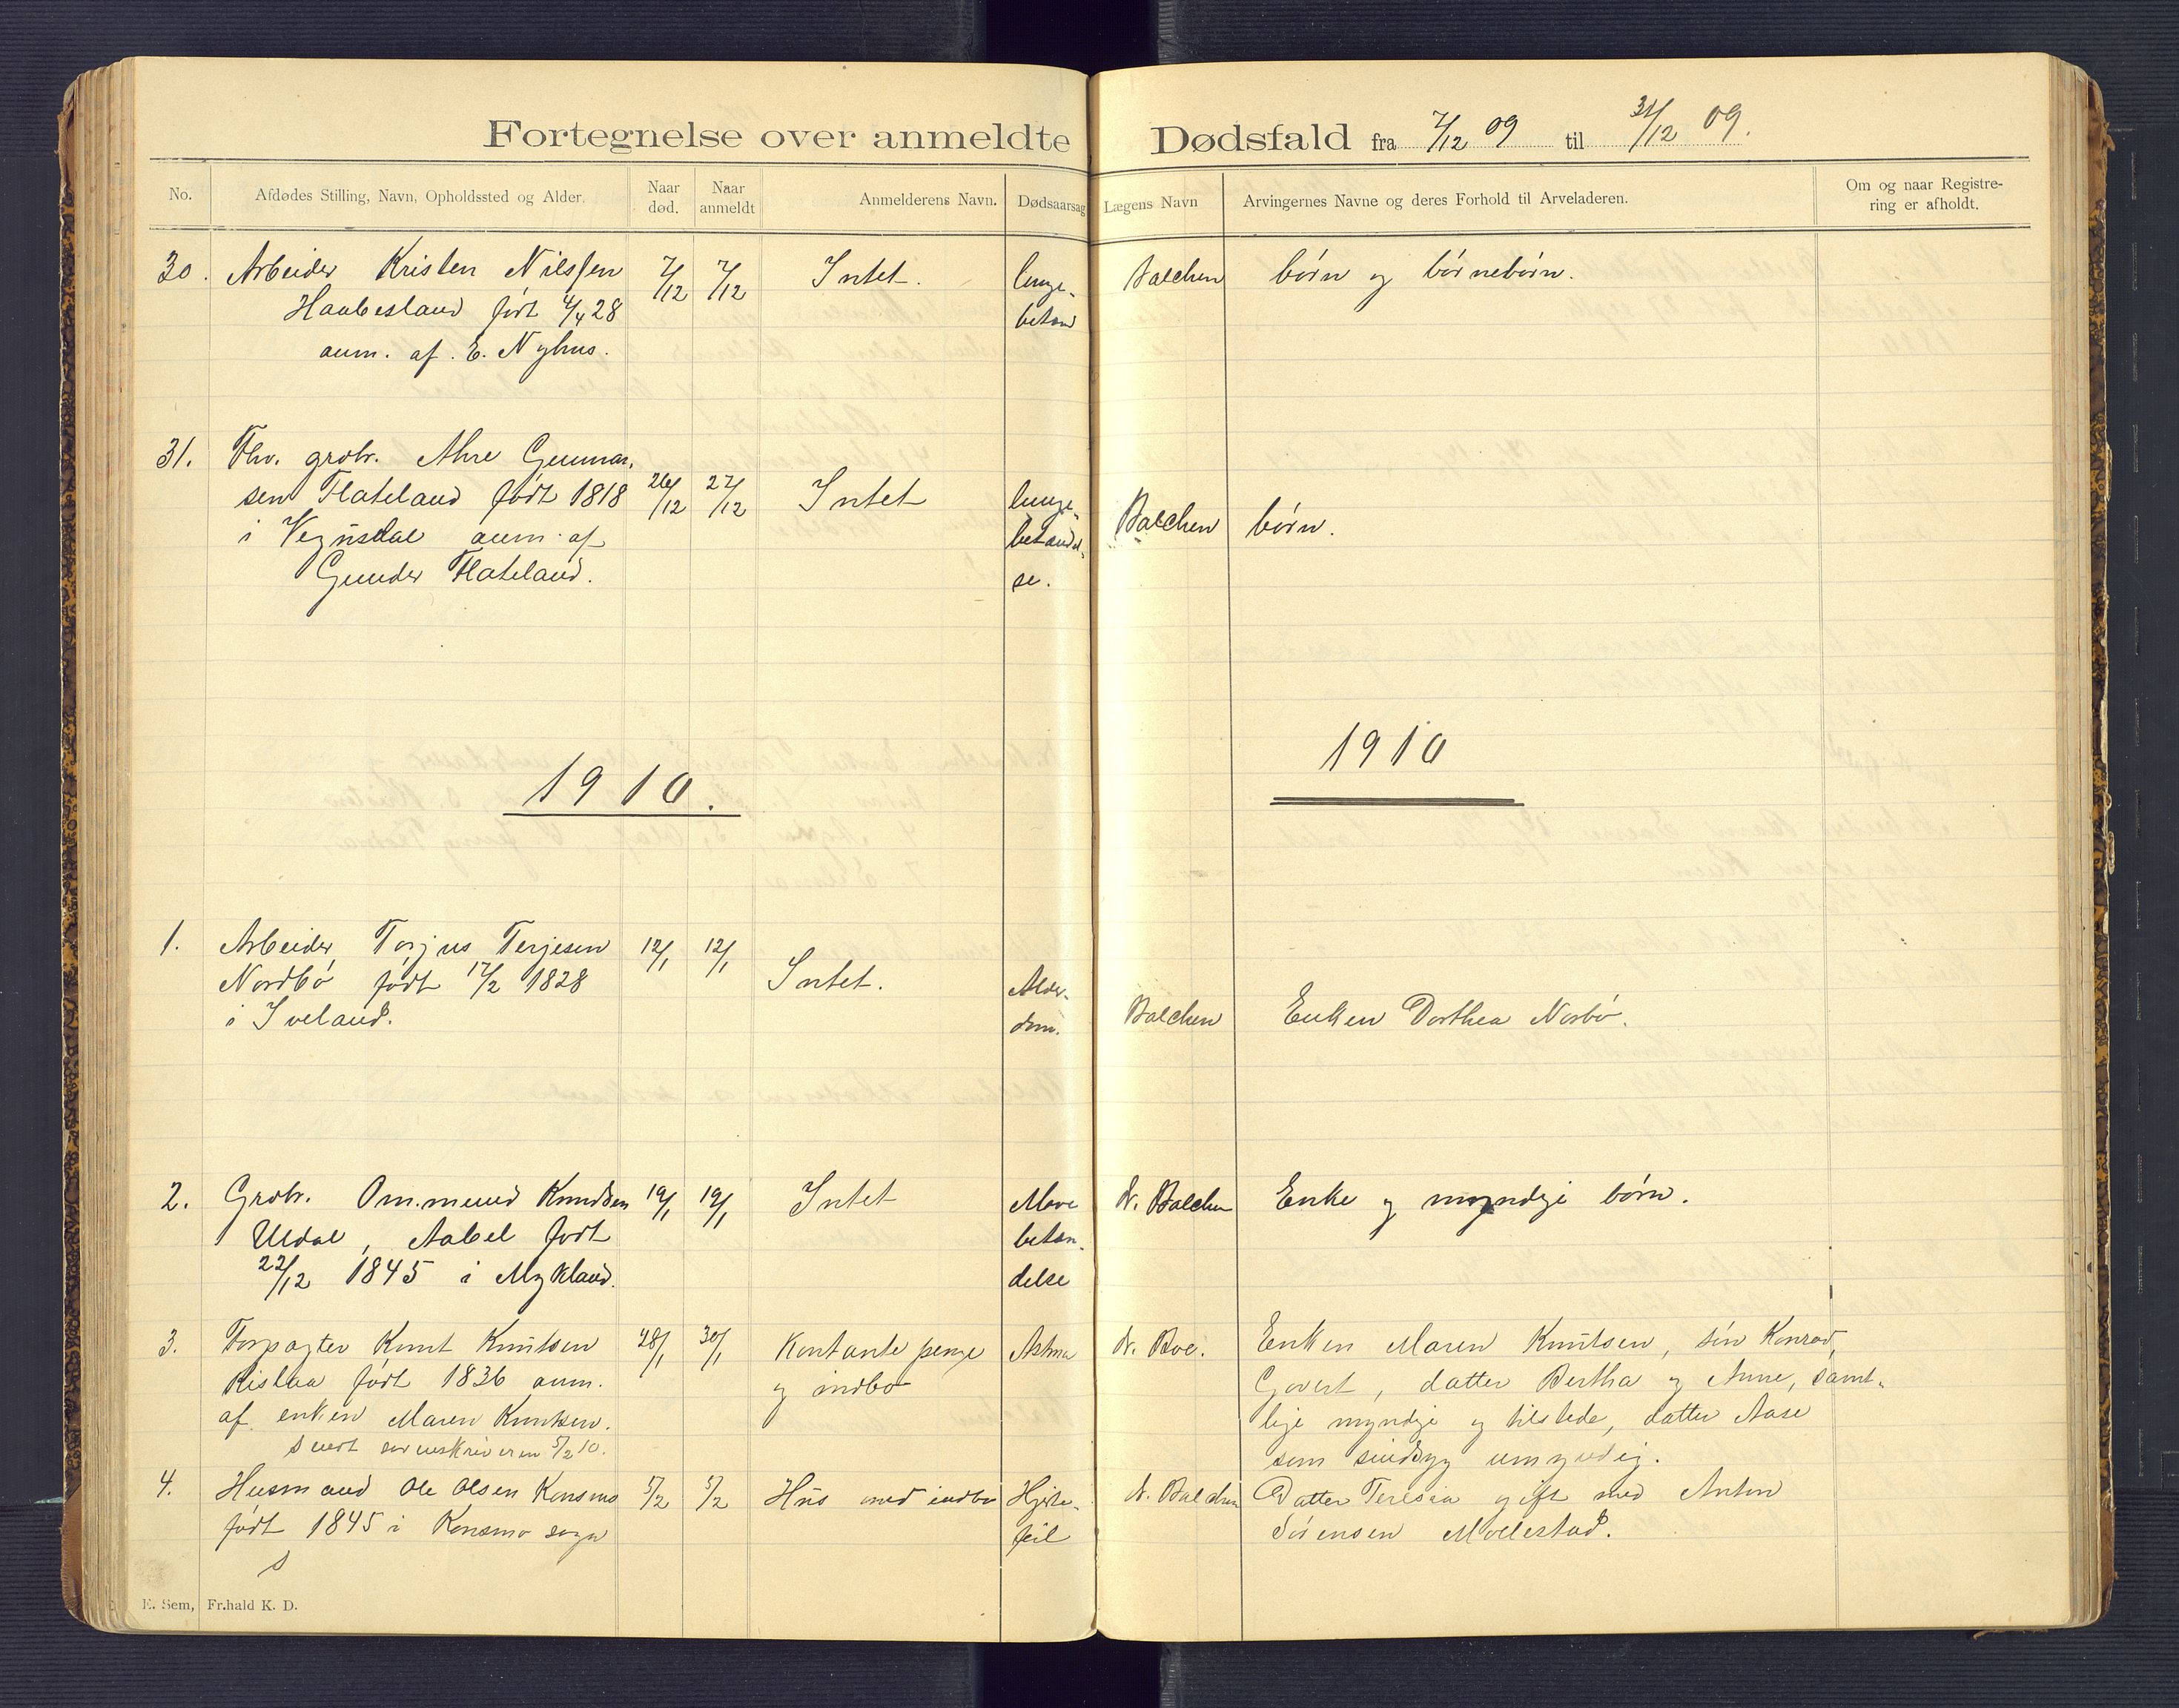 Fortegnelse over anmeldte Dødsfald fra 7/12 09 til 31/12 09.
No. Afdødes Stilling, Navn, Opholdssted og Alder. Naar død. Naar anmeldt Anmelderens Navn. Dødsaarsag Lægens Navn Arvingernes Navne og deres Forhold til Arveladeren. Om og naar Registrering er afholdt.
30. Arbeider Kristen Nilssen 7/12 7/12 Intet. lunge- Balchen børn og børnebørn.
Haabesland født 4/4 28 betænd
anm. af. E. Nyhus.
31. Fhv. grobr. Ahre Gunnar.
sen Flateland født 1818 26/12 27/12 Intet lunge- Balchen børn.
i Vegusdal anm. af betændel-
Gunder Flateland. se.
1910. 1910
1. Arbeider Torjus Terjesen 12/1 12/1
Nordbø født 17/2 1828 Intet. Alder-
i Iveland. dom. Balchen Enken Dorthea Norbø.
2. Grobr. Ommund Knudsen 19/1 19/1 Intet Mave dr. Balchen Enke og myndige børn.
Uldal, Aabel født betæn-
22/12 1845 i Mykland. delse
3. Forpagter Knut Knutsen 28/1 30/1 Kontante penge Astma dr. Boe. Enken Maren Knutsen, søn Konrad,
Rislaa født 1836 anm. og indbo Govert, datter Bertha og Anne, samt-
af enken Maren Knutsen. lige myndige og tilstede, datter Aase
Sendt sorenskriveren 5/2 10. som sindsyg umyndig.
4. Husmand Ole Olsen Konsmo 5/2 5/2 Hus med indbo Hjerte- dr. Balchen Datter Teresia gift med Anton
født 1845 i Konsmo sogn feil Sørensen Mollestad.
S
E. Sem, Fr.hald K. D.